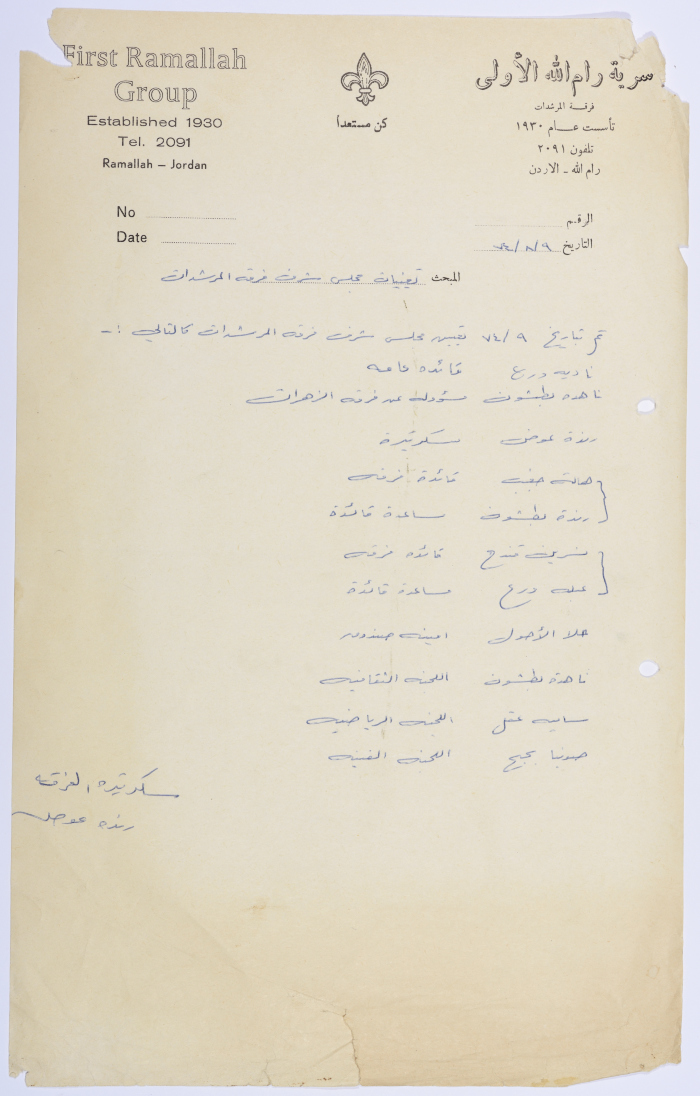 First Ramallah
Group
Established 1930
Tel. 2091
Ramallah – Jordan
كن مستعداً
سرية رام الله الأولى
فرقة المرشدات
تأسست عام ١٩٣٠
تلفون ٢٠٩١
رام الله - الاردن
No
Date
الرقم
التاريخ ٧٤/٨/٩
المبحث تعيينات مجلس شرف فرقه المرشدات
تم بتاريخ ٧٤/٩ تعيين مجلس شرف فرقه المرشدات كالتالي :-
ناديه درع قائده عامه
ناهده بطشون مسؤوله عن فرقه الزهرات
رندة عوض سكرتيرة
هالة قائدة فرقه
رندة بطشون مساعدة قائدة
نسرين قندح قائده فرقه
عبله درع مساعدة قائدة
حلا الأحول امينه صندوق
ناهدة بطشون اللجنه الثقافيه
ساميه عقل اللجنه الرياضيه
صونيا اللجنه الفنيه
سكرتيره الفرقه
رنده عوض